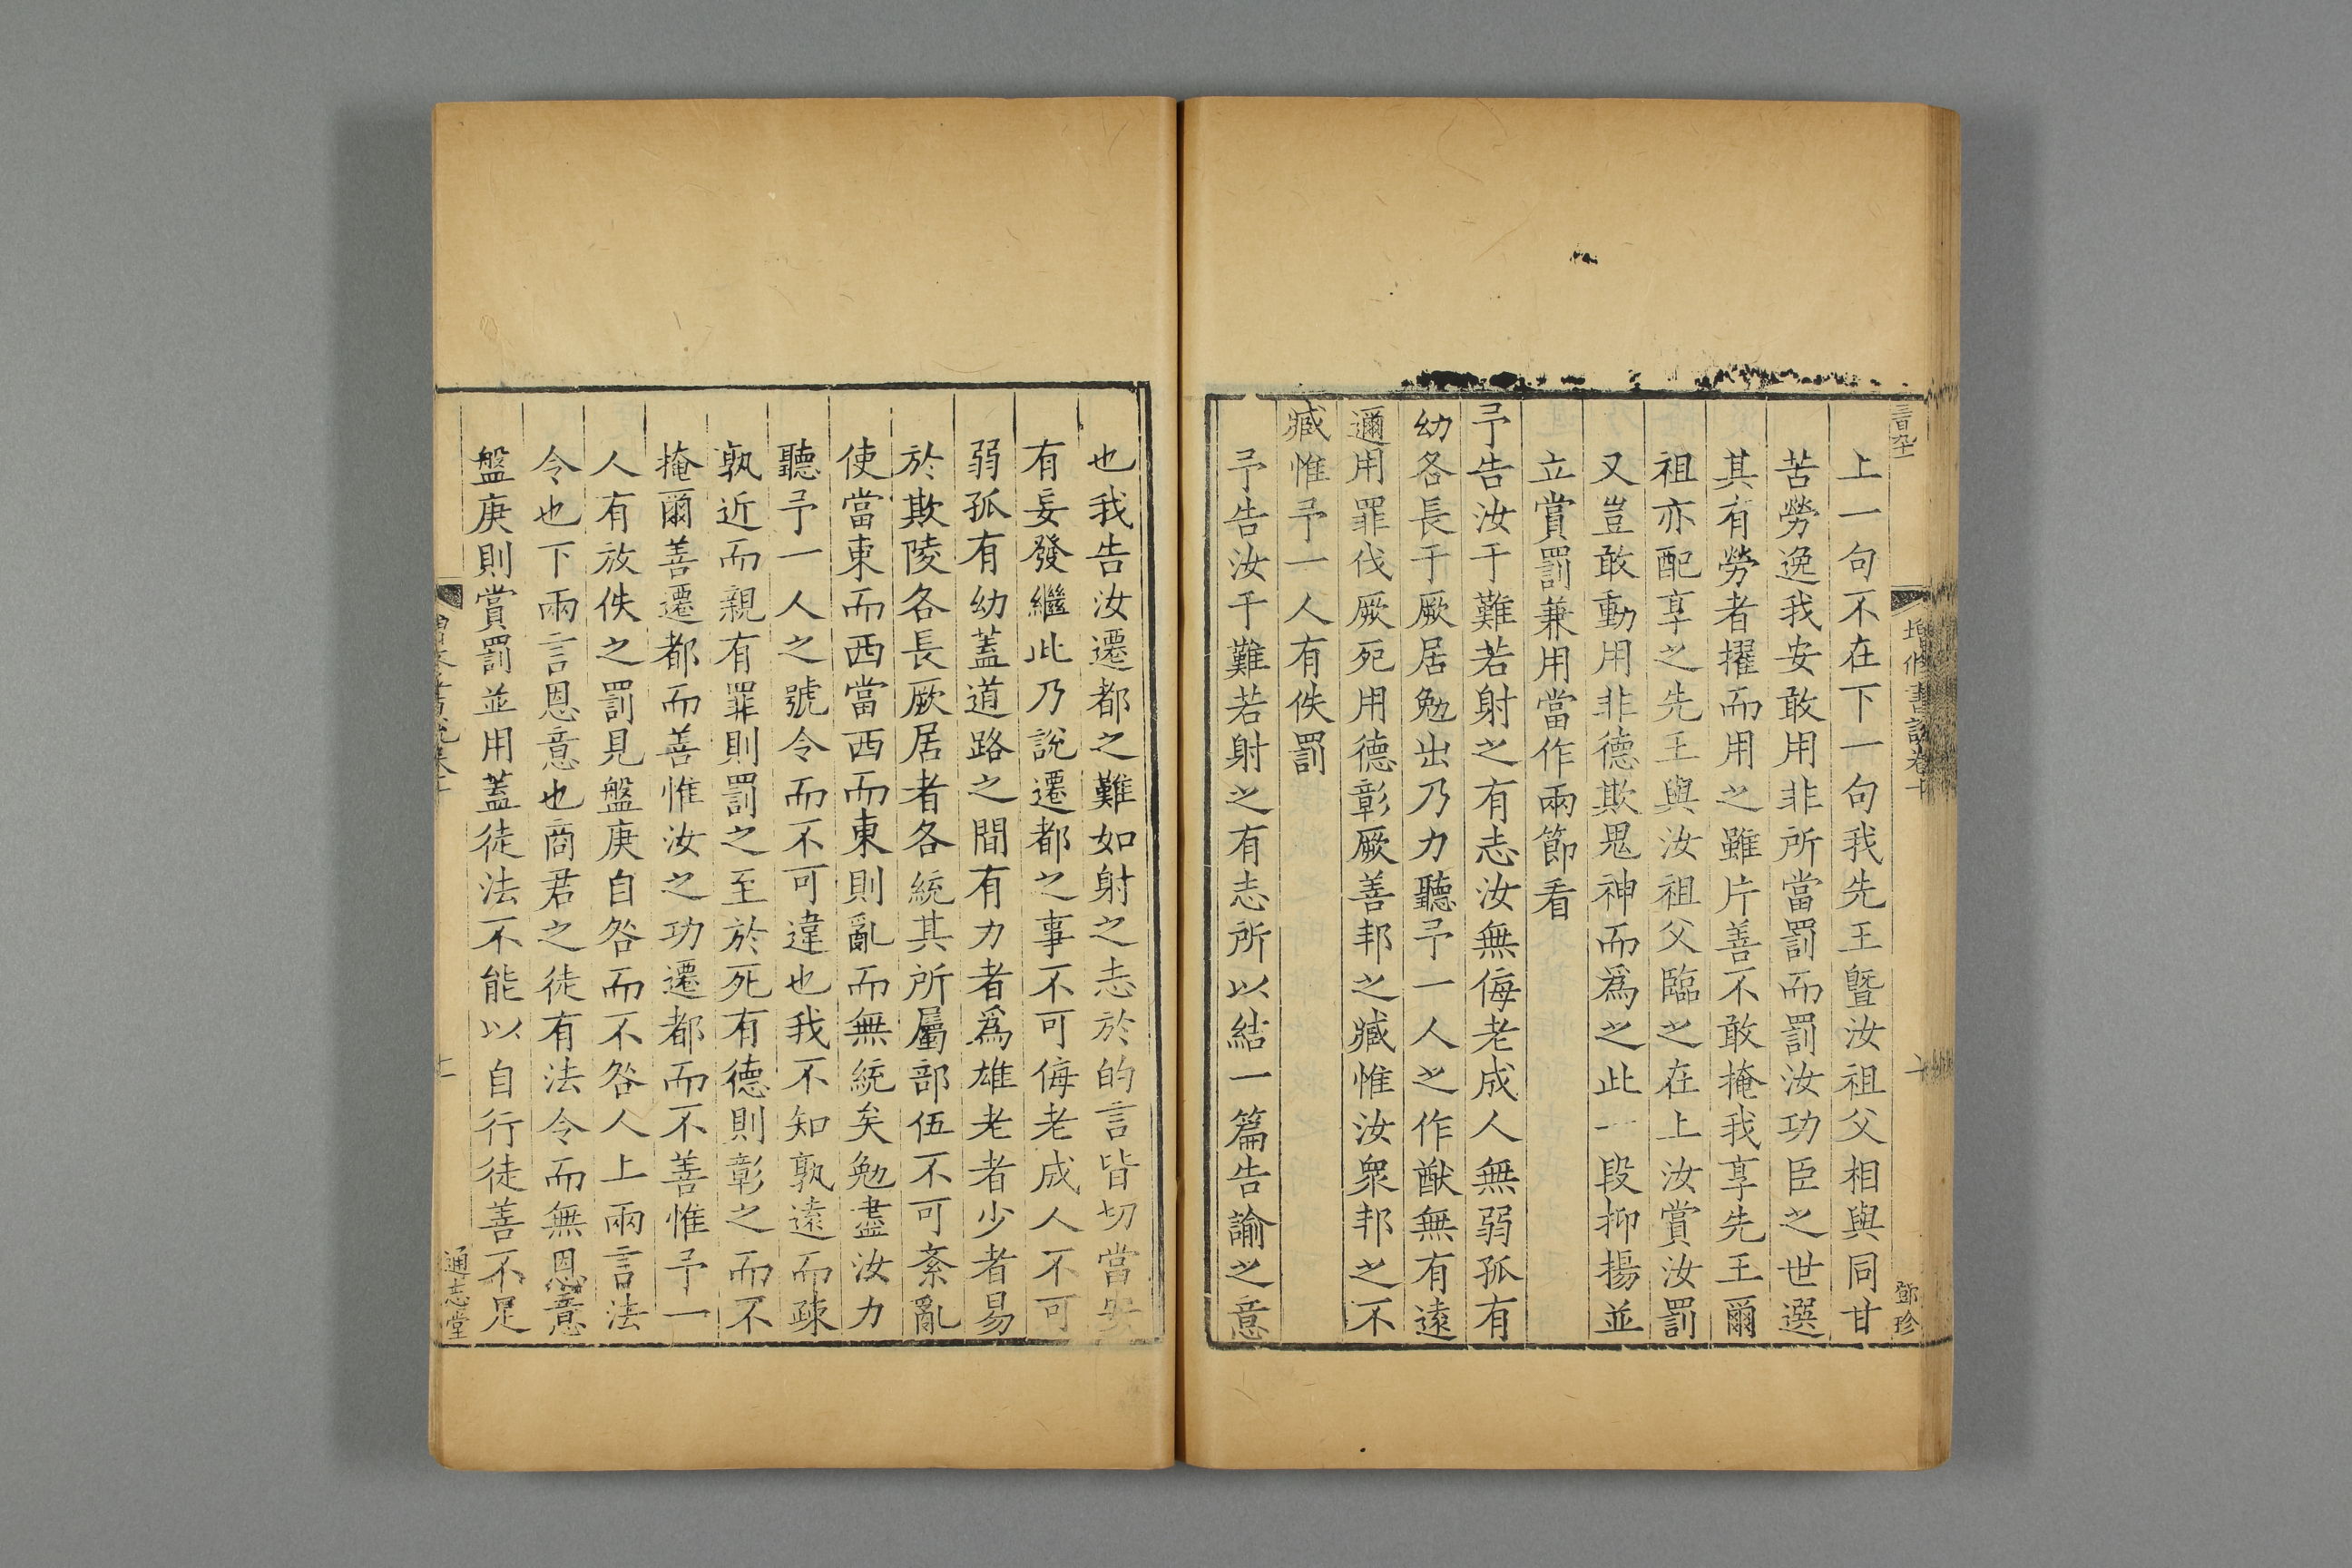 增修書說卷十
十
鄧珍
上一句不在下一句我先王曁汝祖父相與同甘
苦勞逸我安敢用非所當罰而罰汝功臣之世選
其有勞者擢而用之雖片善不敢掩我享先王爾
祖亦配享之先王與汝祖父臨之在上汝賞汝罰
又豈敢動用非德欺鬼神而爲之此一段抑揚並
立賞罰兼用當作兩節看
予告汝于難若射之有志汝無侮老成人無弱孤有
幼各長于厥居勉出乃力聽予一人之作猷無有遠
邇用罪伐厥死用德彰厥善邦之臧惟汝衆邦之不
臧惟予一人有佚罰
予告汝于難若射之有志所以結一篇告諭之意
也我告汝遷都之難如射之志於的言皆切當安
有妄發繼此乃說遷都之事不可侮老成人不可
弱孤有幼蓋道路之間有力者爲雄老者少者易
於欺陵各長厥居者各統其所屬部伍不可紊亂
使當東而西當西而東則亂而無統矣勉盡汝力
聽予一人之號令而不可違也我不知孰遠而疎
孰近而親有罪則罰之至於死有德則彰之而不
掩爾善遷都而善惟汝之功遷都而不善惟予一
人有放佚之罰見盤庚自咎而不咎人上兩言法
令也下兩言恩意也商君之徒有法令而無恩意
盤庚則賞罰並用蓋徒法不能以自行徒善不足
通志堂